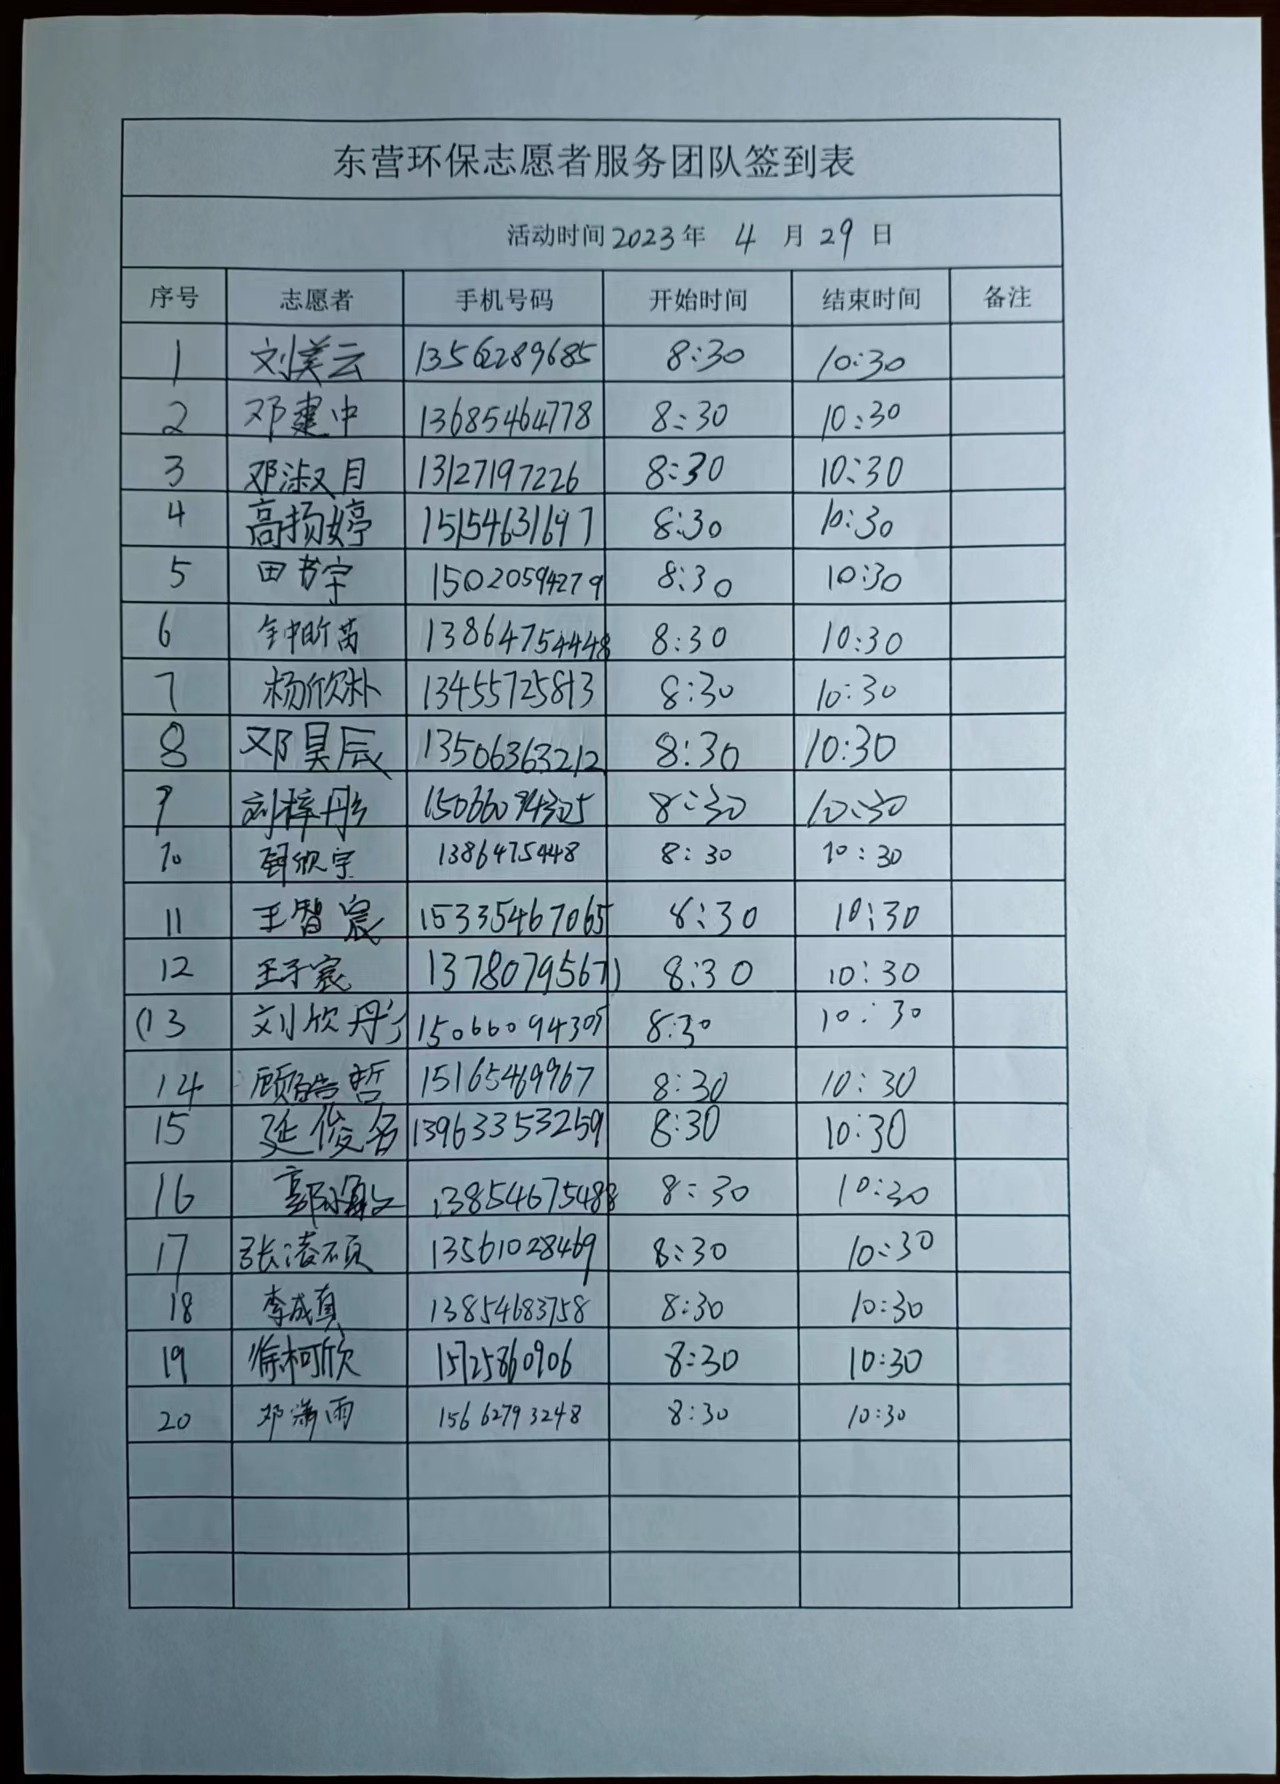 东营环保志愿者服务团队签到表
活动时间2023年 4 月 29 日
序号 志愿者 手机号码 开始时间 结束时间 备注
1 刘美云 13562289685 8:30 10:30
2 邓建中 13685464778 8:30 10:30
3 邓淑月 13127197226 8:30 10:30
4 高扬婷 15154631697 8:30 10:30
5 田书宇 15020594279 8:30 10:30
6 钟昕芮 13864754448 8:30 10:30
7 杨欣朴 13455725813 8:30 10:30
8 邓昊辰 13506363212 8:30 10:30
9 刘梓彤 15066094305 8:30 10:30
10 欣宇 1386475448 8:30 10:30
11 王智宸 15335467065 8:30 10:30
12 王子宸 13780795671 8:30 10:30
13 刘欣彤 15066094305 8:30 10:30
14 顾皓哲 15165469967 8:30 10:30
15 延俊名 13963353259 8:30 10:30
16 郭 13854675488 8:30 10:30
17 张凌硕 13561028469 8:30 10:30
18 李成真 13854683758 8:30 10:30
19 徐柯欣 15725860906 8:30 10:30
20 邓潇雨 15662793248 8:30 10:30